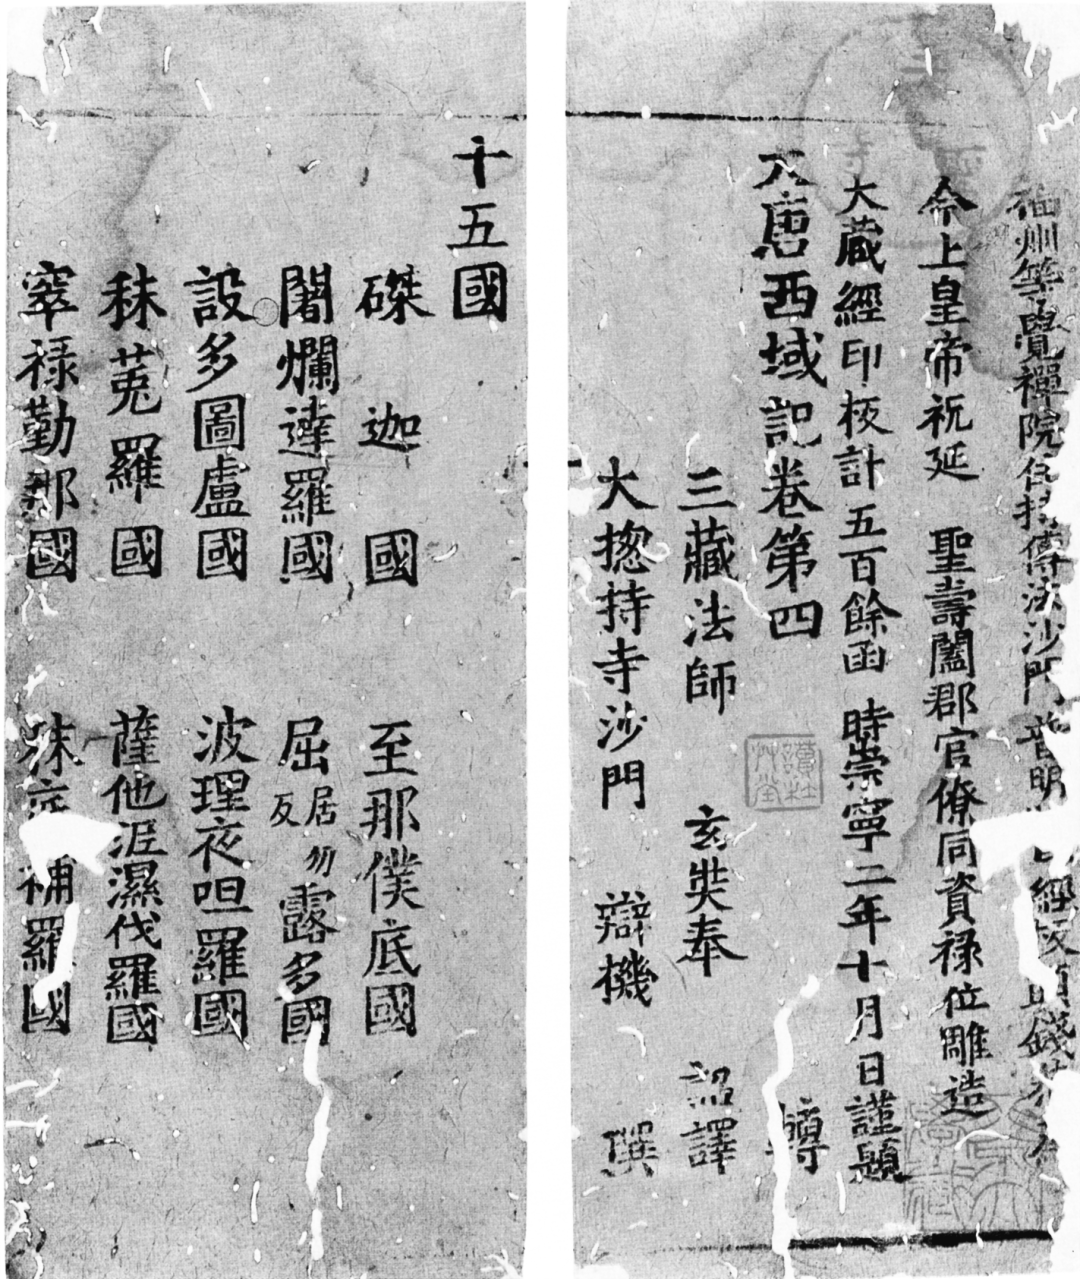 福州等覺禪院住持傳法沙門普明 經板頭錢
今上皇帝祝延　聖壽闔郡官僚同資祿位雕造
大藏經印板計五百餘函　時崇寧二年十月日謹題
大唐西域記卷第四　轉
三藏法師　玄奘奉　詔譯
大揔持寺沙門　辯機　撰
十五國
磔迦國　至那僕底國
闍爛達羅國　屈居勿反露多國
設多圖盧國　波理夜呾羅國
秣菟羅國　薩他泥濕伐羅國
窣祿勤那國　秣底補羅國